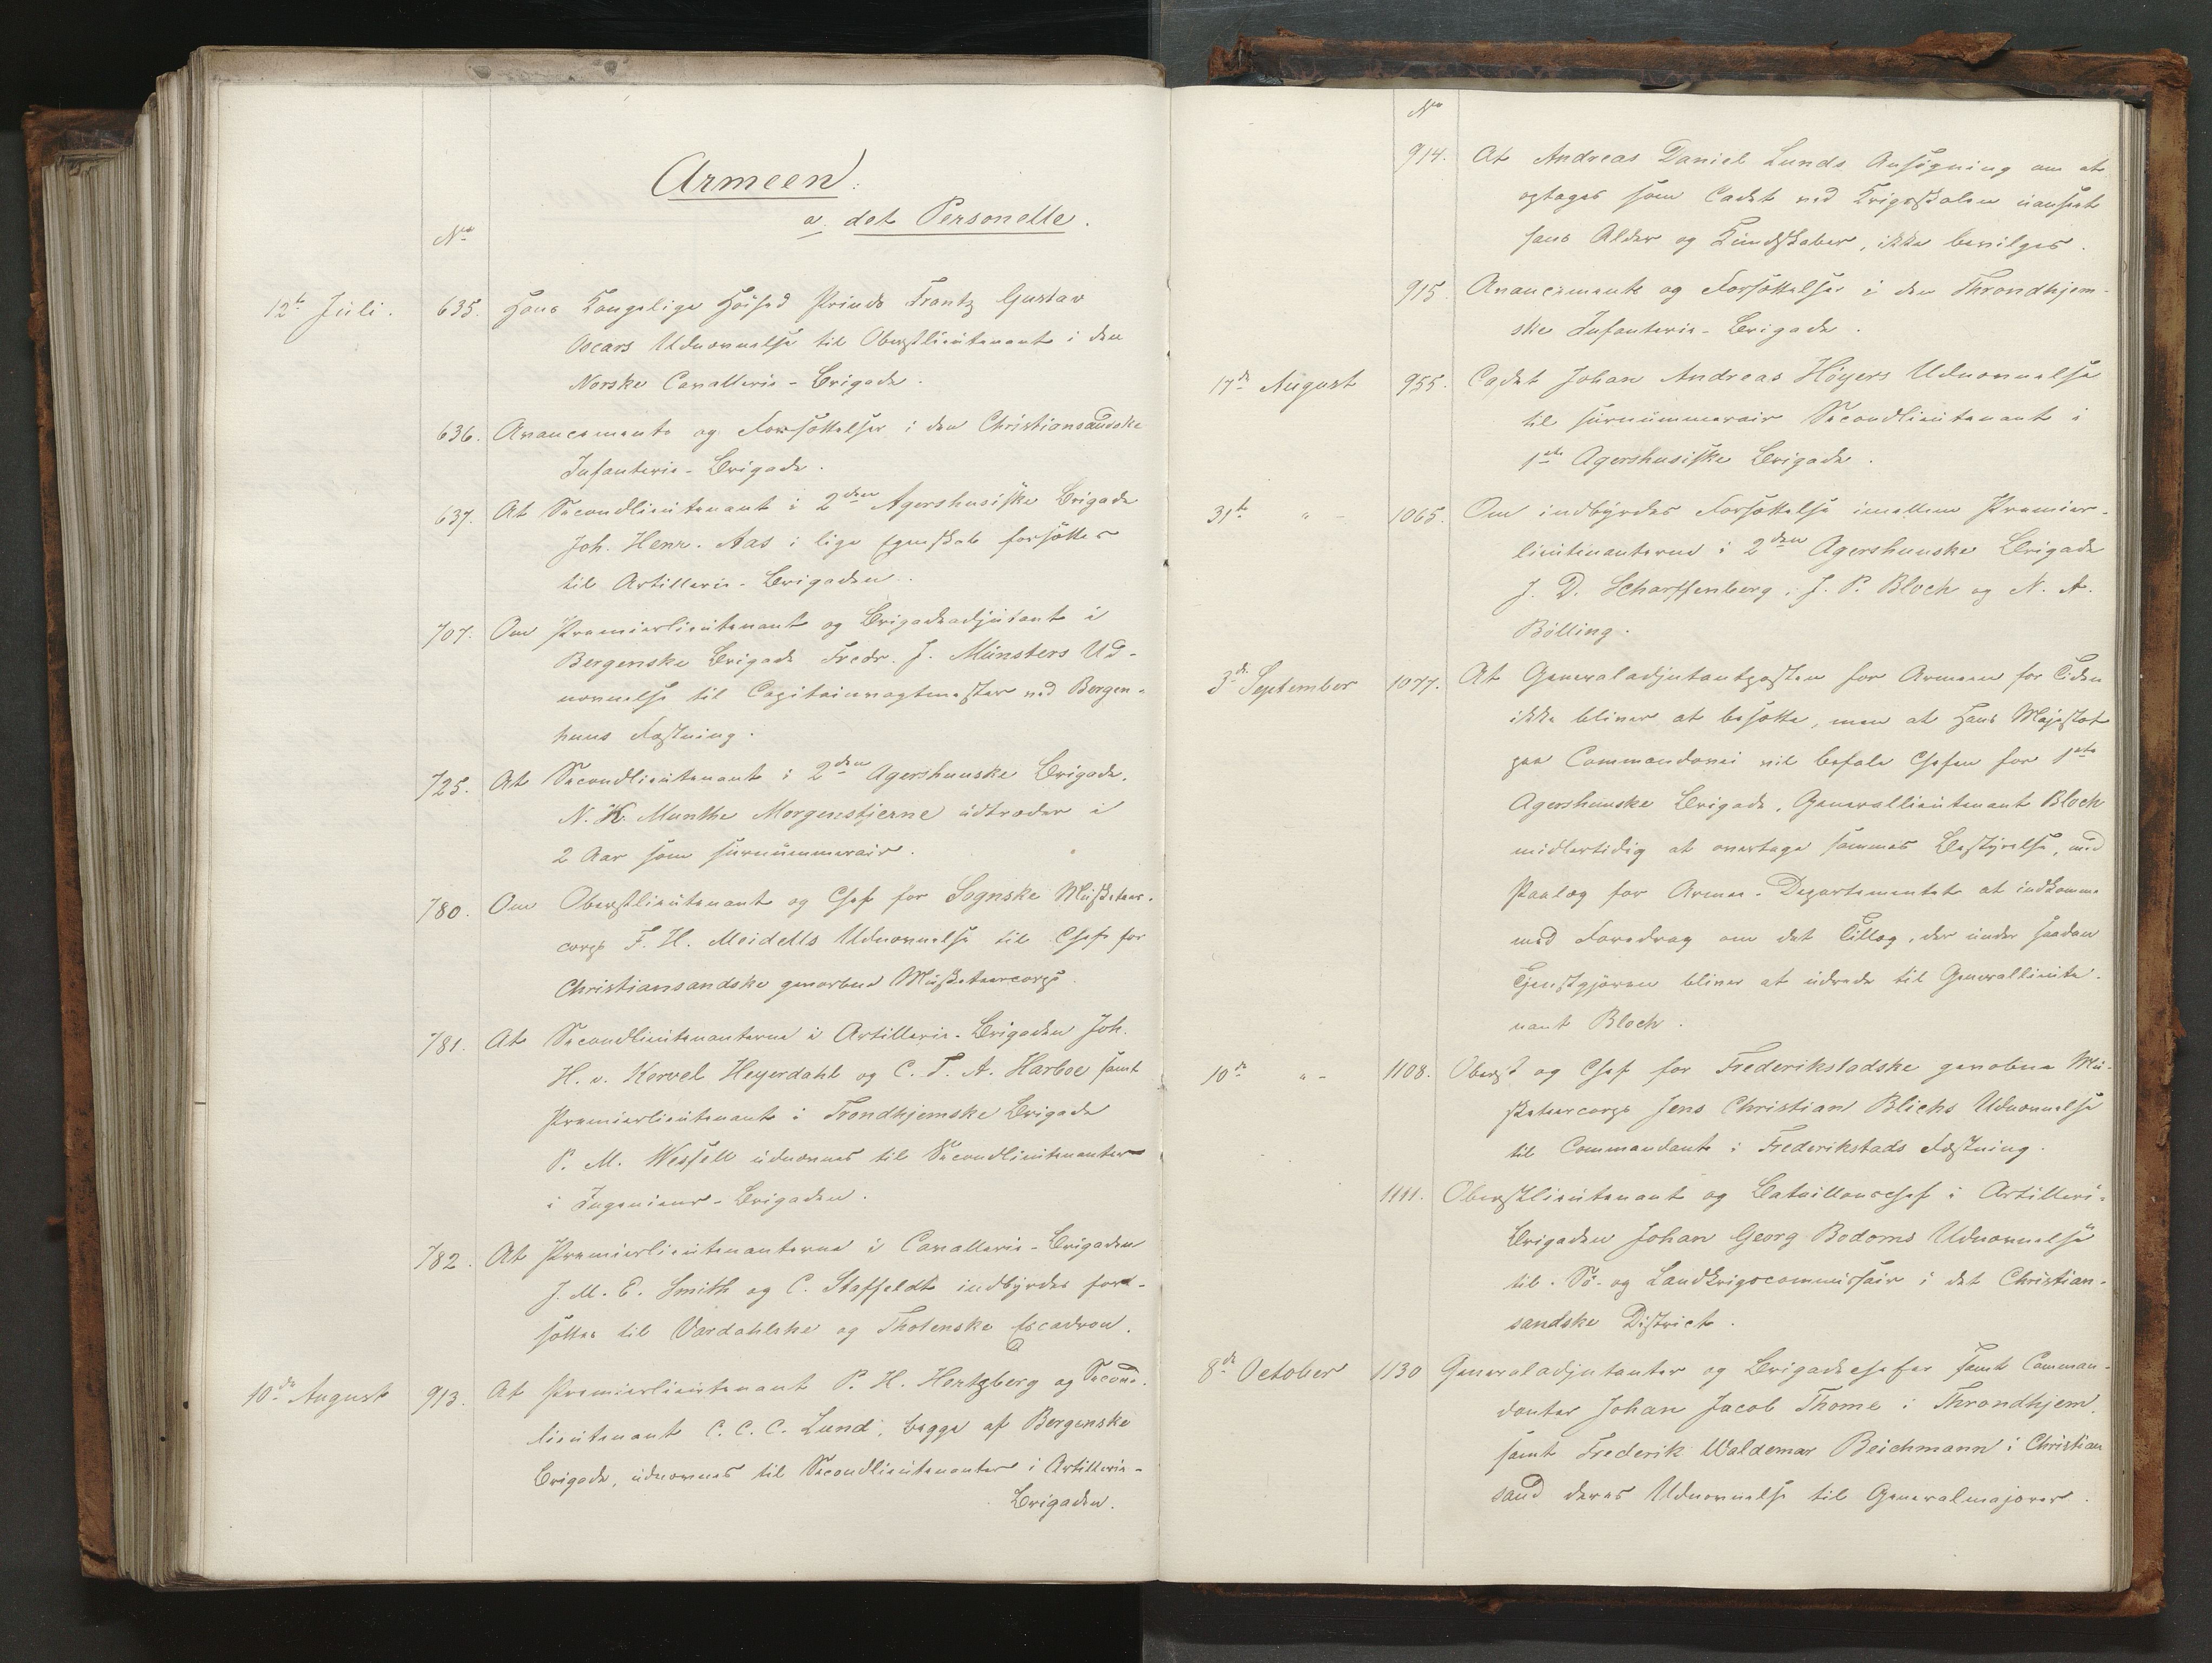 Armeen.
a. det Personelle.
No
12te Juli. 635. Hans Kongelige Høihed Prinds Frantz Gustav
Oscars Udnævnelse til Oberstlieutenant i den
Norske Cavallerie-Brigade.
636. Avancemente og Forsættelser i den Christiansandske
Infanterie-Brigade.
637. At Secondlieutenant i 2den Agershusiske Brigade
Joh. Henr. Aas i lige Egenskab forsættes
til Artillerie-Brigaden.
707. Om Premierlieutenant og Brigadeadjutant i
Bergenske Brigade Fredr. J. Münsters Ud-
nævnelse til Capitainvagtmester ved Bergen-
huus Fæstning.
725. At Secondlieutenant i 2den Agershuuske Brigade,
N. K. Munthe Morgenstjerne udtræder i
2 Aar som surnummerair.
780. Om Oberstlieutenant og Chef for Sognske Musketeer-
corps F. H. Meidells Udnævnelse til Chef for
Christiansandske gevorbne Musketeercorps.
781. At Secondlieutenanterne i Artillerie-Brigaden Joh.
H. v. Kervel Heyerdahl og C. T. A. Harboe samt
Premierlieutenant i Trondhjemske Brigade
P. M. Wessell udnævnes til Secondlieutenanter
i Ingenieur-Brigaden.
782. At Premierlieutenanterne i Cavallerie-Brigaden
J. M. E. Smith og C. Staffeldt indbyrdes for-
sættes til Vardahlske og Thotenske Escadron.
10de August 913. At Premierlieutenant P. H. Hertzberg og Second-
lieutenant C. C. C. Lund, begge af Bergenske
Brigade, udnævnes til Secondlieutenanter i Artillerie-
Brigaden.
No
914. At Andreas Daniel Lunds Ansøgning om at
optages som Cadet ved Krigsskolen uanseet
hans Alder og Kundskaber, ikke bevilges.
915. Avancemente og Forsættelser i den Throndhjem-
ske Infanterie-Brigade.
17de August 955. Cadet Johan Andreas Höyers Udnævnelse
til surnummerair Secondlieutenant i
1ste Agershusiske Brigade.
31te " - 1065. Om indbyrdes Forsættelse imellem Premier-
lieutenanterne i 2den Agershuuske Brigade
J. D. Scharffenberg, J. P. Bloch og N. A.
Bölling.
3de September 1077. At Generaladjutantposten for Armeen for Tiden
ikke bliver at besætte, men at Hans Majestæt
paa Commandovei vil befale Chefen for 1ste
Agershuuske Brigade, Generallieutenant Bloch
midlertidig at overtage sammes Bestyrelse, med
Paalæg for Armee-Departementet at indkomme
med Foredrag om det Tillæg, der under saadan
Tjenstgjøren bliver at udrede til Generallieute-
nant Bloch.
10de " - 1108. Oberst og Chef for Frederikstadske gevorbne Mu-
sketeercorps Jens Christian Blichs Udnævnelse
til Commandant i Frederikstads Fæstning.
1111. Oberstlieutenant og Bataillonschef i Artilleri-
Brigaden Johan Georg Bodoms Udnævnelse
til Sø- og Landkrigscommissair i det Christian-
sandske District.
8de October 1130 Generaladjutanter og Brigadechefer samt Comman-
danter Johan Jacob Thome i Throndhjem,
samt Frederik Waldemar Beichmann i Christian
sand deres Udnævnelse til Generalmajorer.